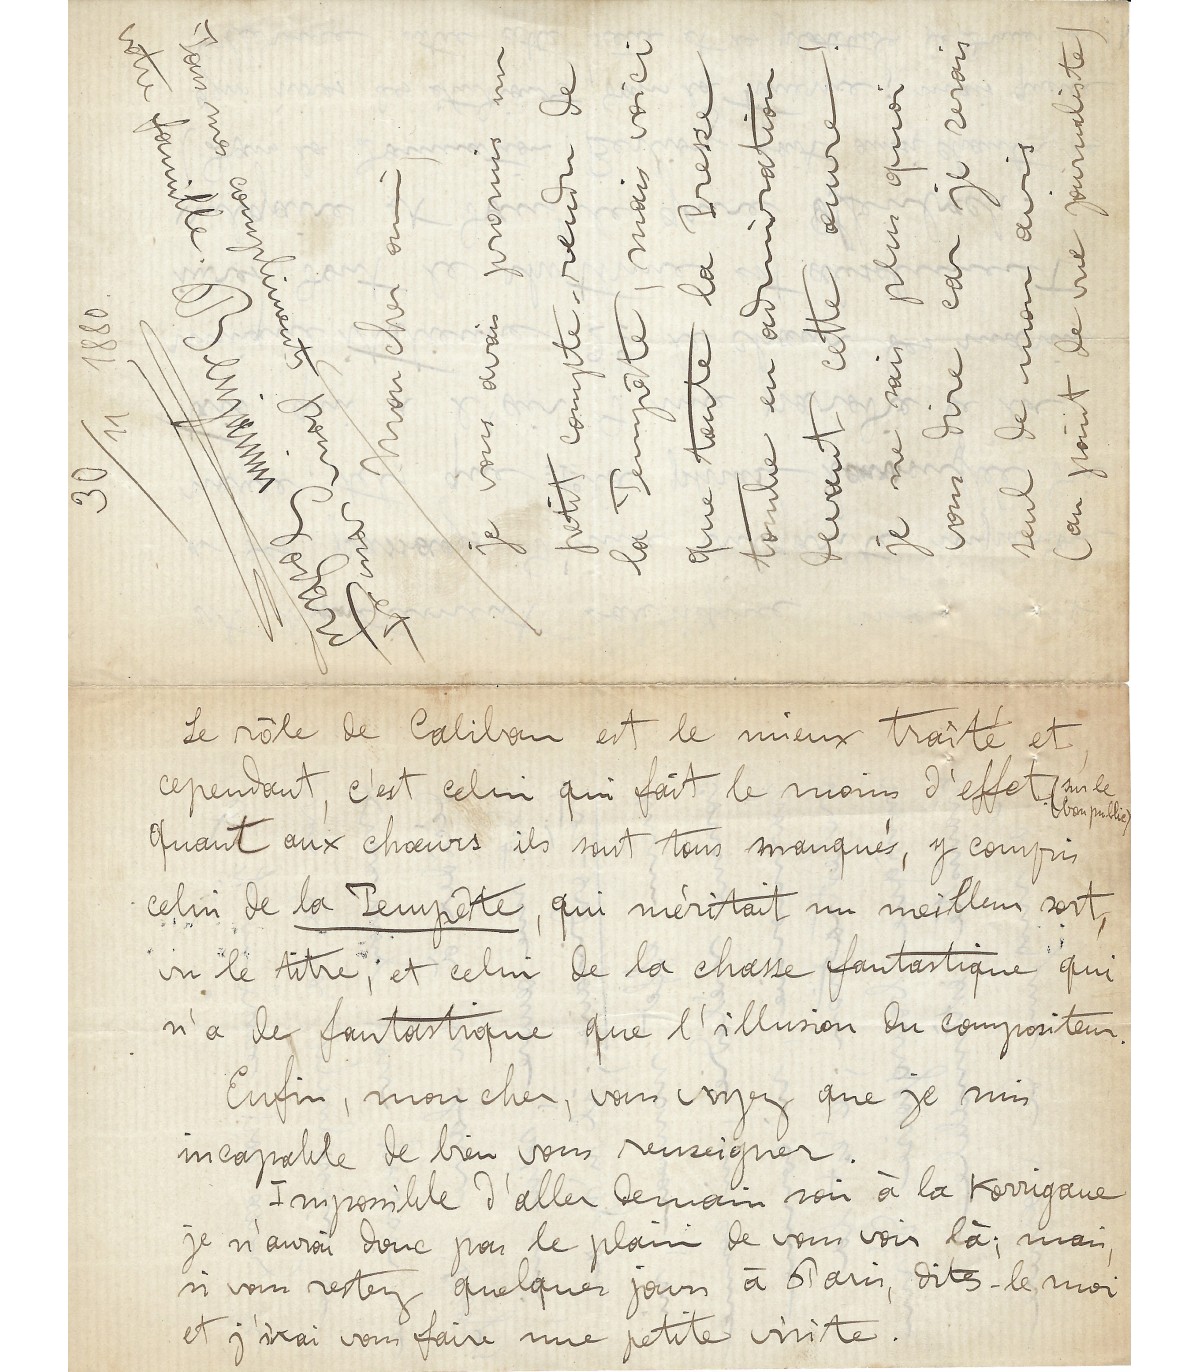 30/11 1880.
Mon cher ami,
je vous avais promis un
petit compte-rendu de
la Tempête, mais voici
que toute la Presse
tombe en admiration
devant cette œuvre!
je ne sais plus quoi
vous dire car je serais
seul de mon avis
(au point de vue journaliste)
Le rôle de Caliban est le mieux traité et
cependant, c'est celui qui fait le moins d'effet (sur le
bon public)
quant aux chœurs ils sont tous manqués, y compris
celui de la Tempête, qui méritait un meilleur sort,
vu le titre, et celui de la chasse fantastique qui
n'a de fantastique que l'illusion du compositeur.
Enfin, mon cher, vous voyez que je suis
incapable de bien vous renseigner.
Impossible d'aller demain soir à la Korrigane
je n'aurai donc pas le plaisir de vous voir là; mais,
si vous restez quelques jours à Paris, dites-le moi
et j'irai vous faire une petite visite.
Tous nos compliments pour vous et
votre famille. Benjamin
Godard